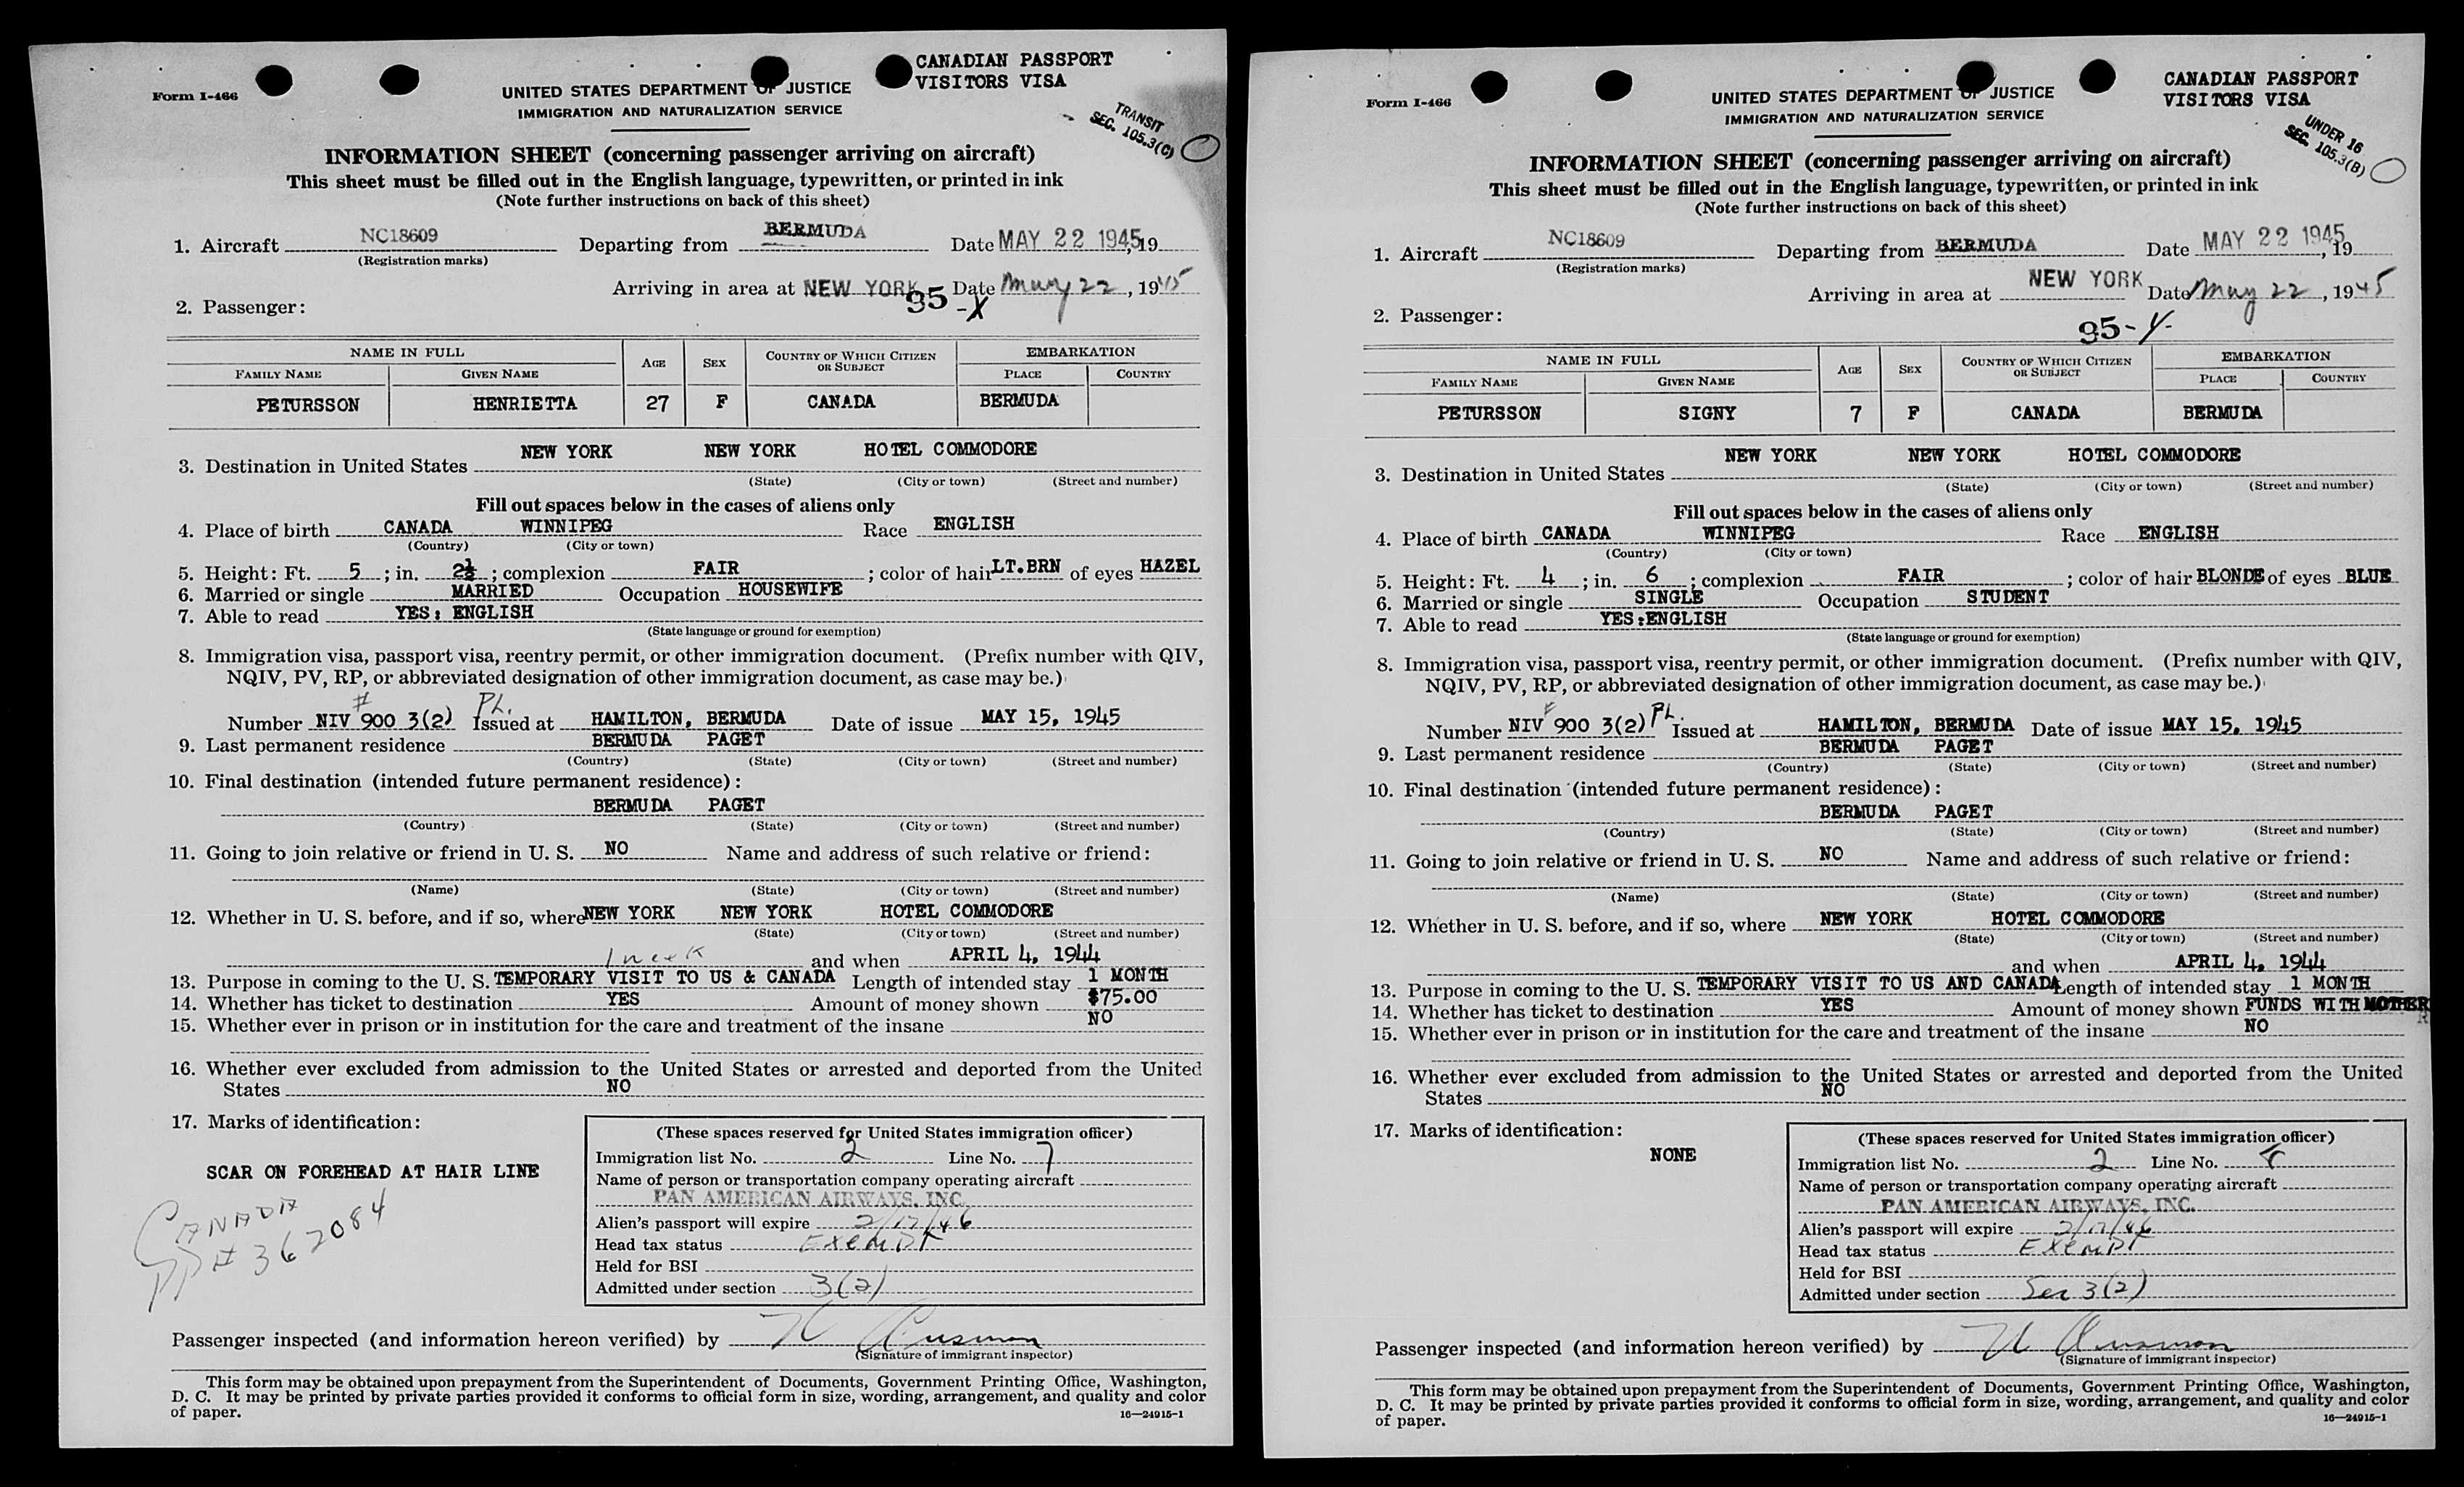 CANADIAN PASSPORT
VISITORS VISA
Form I-466
UNITED STATES DEPARTMENT OF JUSTICE
IMMIGRATION AND NATURALIZATION SERVICE
TRANSIT
SEC. 105.3(C)
INFORMATION SHEET (concerning passenger arriving on aircraft)
This sheet must be filled out in the English language, typewritten, or printed in ink
(Note further instructions on back of this sheet)
1. Aircraft NC18609 Departing from BERMUDA Date MAY 22 1945, 19
(Registration marks)
Arriving in area at NEW YORK Date May 22, 1945
95-X
2. Passenger:
NAME IN FULL AGE SEX COUNTRY OF WHICH CITIZEN OR SUBJECT EMBARKATION
FAMILY NAME GIVEN NAME PLACE COUNTRY
PETURSSON HENRIETTA 27 F CANADA BERMUDA
NEW YORK NEW YORK HOTEL COMMODORE
3. Destination in United States
(State) (City or town) (Street and number)
Fill out spaces below in the cases of aliens only
4. Place of birth CANADA WINNIPEG Race ENGLISH
(Country) (City or town)
5. Height: Ft. 5; in. 2½; complexion FAIR; color of hair LT.BRN of eyes HAZEL
6. Married or single MARRIED Occupation HOUSEWIFE
7. Able to read YES: ENGLISH
(State language or ground for exemption)
8. Immigration visa, passport visa, reentry permit, or other immigration document. (Prefix number with QIV,
NQIV, PV, RP, or abbreviated designation of other immigration document, as case may be.)
# PL.
Number NIV 900 3(2) Issued at HAMILTON, BERMUDA Date of issue MAY 15, 1945
9. Last permanent residence BERMUDA PAGET
(Country) (State) (City or town) (Street and number)
10. Final destination (intended future permanent residence):
BERMUDA PAGET
(Country) (State) (City or town) (Street and number)
11. Going to join relative or friend in U. S. NO Name and address of such relative or friend:
(Name) (State) (City or town) (Street and number)
12. Whether in U. S. before, and if so, where NEW YORK NEW YORK HOTEL COMMODORE
(State) (City or town) (Street and number)
1 week and when APRIL 4, 1944
13. Purpose in coming to the U. S. TEMPORARY VISIT TO US & CANADA Length of intended stay 1 MONTH
14. Whether has ticket to destination YES Amount of money shown $75.00
15. Whether ever in prison or in institution for the care and treatment of the insane NO
16. Whether ever excluded from admission to the United States or arrested and deported from the United
States NO
17. Marks of identification:
SCAR ON FOREHEAD AT HAIR LINE
CANADA
PP# 362084
(These spaces reserved for United States immigration officer)
Immigration list No. 2 Line No. 7
Name of person or transportation company operating aircraft
PAN AMERICAN AIRWAYS, INC.
Alien's passport will expire 2/17/46
Head tax status Exempt
Held for BSI
Admitted under section 3(2)
Passenger inspected (and information hereon verified) by
(Signature of immigrant inspector)
This form may be obtained upon prepayment from the Superintendent of Documents, Government Printing Office, Washington,
D. C. It may be printed by private parties provided it conforms to official form in size, wording, arrangement, and quality and color
of paper. 16—24915-1
CANADIAN PASSPORT
VISITORS VISA
Form I-466
UNITED STATES DEPARTMENT OF JUSTICE
IMMIGRATION AND NATURALIZATION SERVICE
UNDER 16
SEC. 105.3(B)
INFORMATION SHEET (concerning passenger arriving on aircraft)
This sheet must be filled out in the English language, typewritten, or printed in ink
(Note further instructions on back of this sheet)
1. Aircraft NC18609 Departing from BERMUDA Date MAY 22 1945, 19
(Registration marks)
Arriving in area at NEW YORK Date May 22, 1945
2. Passenger:
95-
NAME IN FULL AGE SEX COUNTRY OF WHICH CITIZEN OR SUBJECT EMBARKATION
FAMILY NAME GIVEN NAME PLACE COUNTRY
PETURSSON SIGNY 7 F CANADA BERMUDA
NEW YORK NEW YORK HOTEL COMMODORE
3. Destination in United States
(State) (City or town) (Street and number)
Fill out spaces below in the cases of aliens only
4. Place of birth CANADA WINNIPEG Race ENGLISH
(Country) (City or town)
5. Height: Ft. 4; in. 6; complexion FAIR; color of hair BLONDE of eyes BLUE
6. Married or single SINGLE Occupation STUDENT
7. Able to read YES:ENGLISH
(State language or ground for exemption)
8. Immigration visa, passport visa, reentry permit, or other immigration document. (Prefix number with QIV,
NQIV, PV, RP, or abbreviated designation of other immigration document, as case may be.)
# PL.
Number NIV 900 3(2) Issued at HAMILTON, BERMUDA Date of issue MAY 15, 1945
9. Last permanent residence BERMUDA PAGET
(Country) (State) (City or town) (Street and number)
10. Final destination (intended future permanent residence):
BERMUDA PAGET
(Country) (State) (City or town) (Street and number)
11. Going to join relative or friend in U. S. NO Name and address of such relative or friend:
(Name) (State) (City or town) (Street and number)
12. Whether in U. S. before, and if so, where NEW YORK HOTEL COMMODORE
(State) (City or town) (Street and number)
and when APRIL 4, 1944
13. Purpose in coming to the U. S. TEMPORARY VISIT TO US AND CANADA Length of intended stay 1 MONTH
14. Whether has ticket to destination YES Amount of money shown FUNDS WITH MOTHER
15. Whether ever in prison or in institution for the care and treatment of the insane NO
16. Whether ever excluded from admission to the United States or arrested and deported from the United
States NO
17. Marks of identification:
NONE
(These spaces reserved for United States immigration officer)
Immigration list No. 2 Line No. 8
Name of person or transportation company operating aircraft
PAN AMERICAN AIRWAYS, INC.
Alien's passport will expire 2/17/46
Head tax status Exempt
Held for BSI
Admitted under section Sec 3(2)
Passenger inspected (and information hereon verified) by
(Signature of immigrant inspector)
This form may be obtained upon prepayment from the Superintendent of Documents, Government Printing Office, Washington,
D. C. It may be printed by private parties provided it conforms to official form in size, wording, arrangement, and quality and color
of paper. 16—24915-1